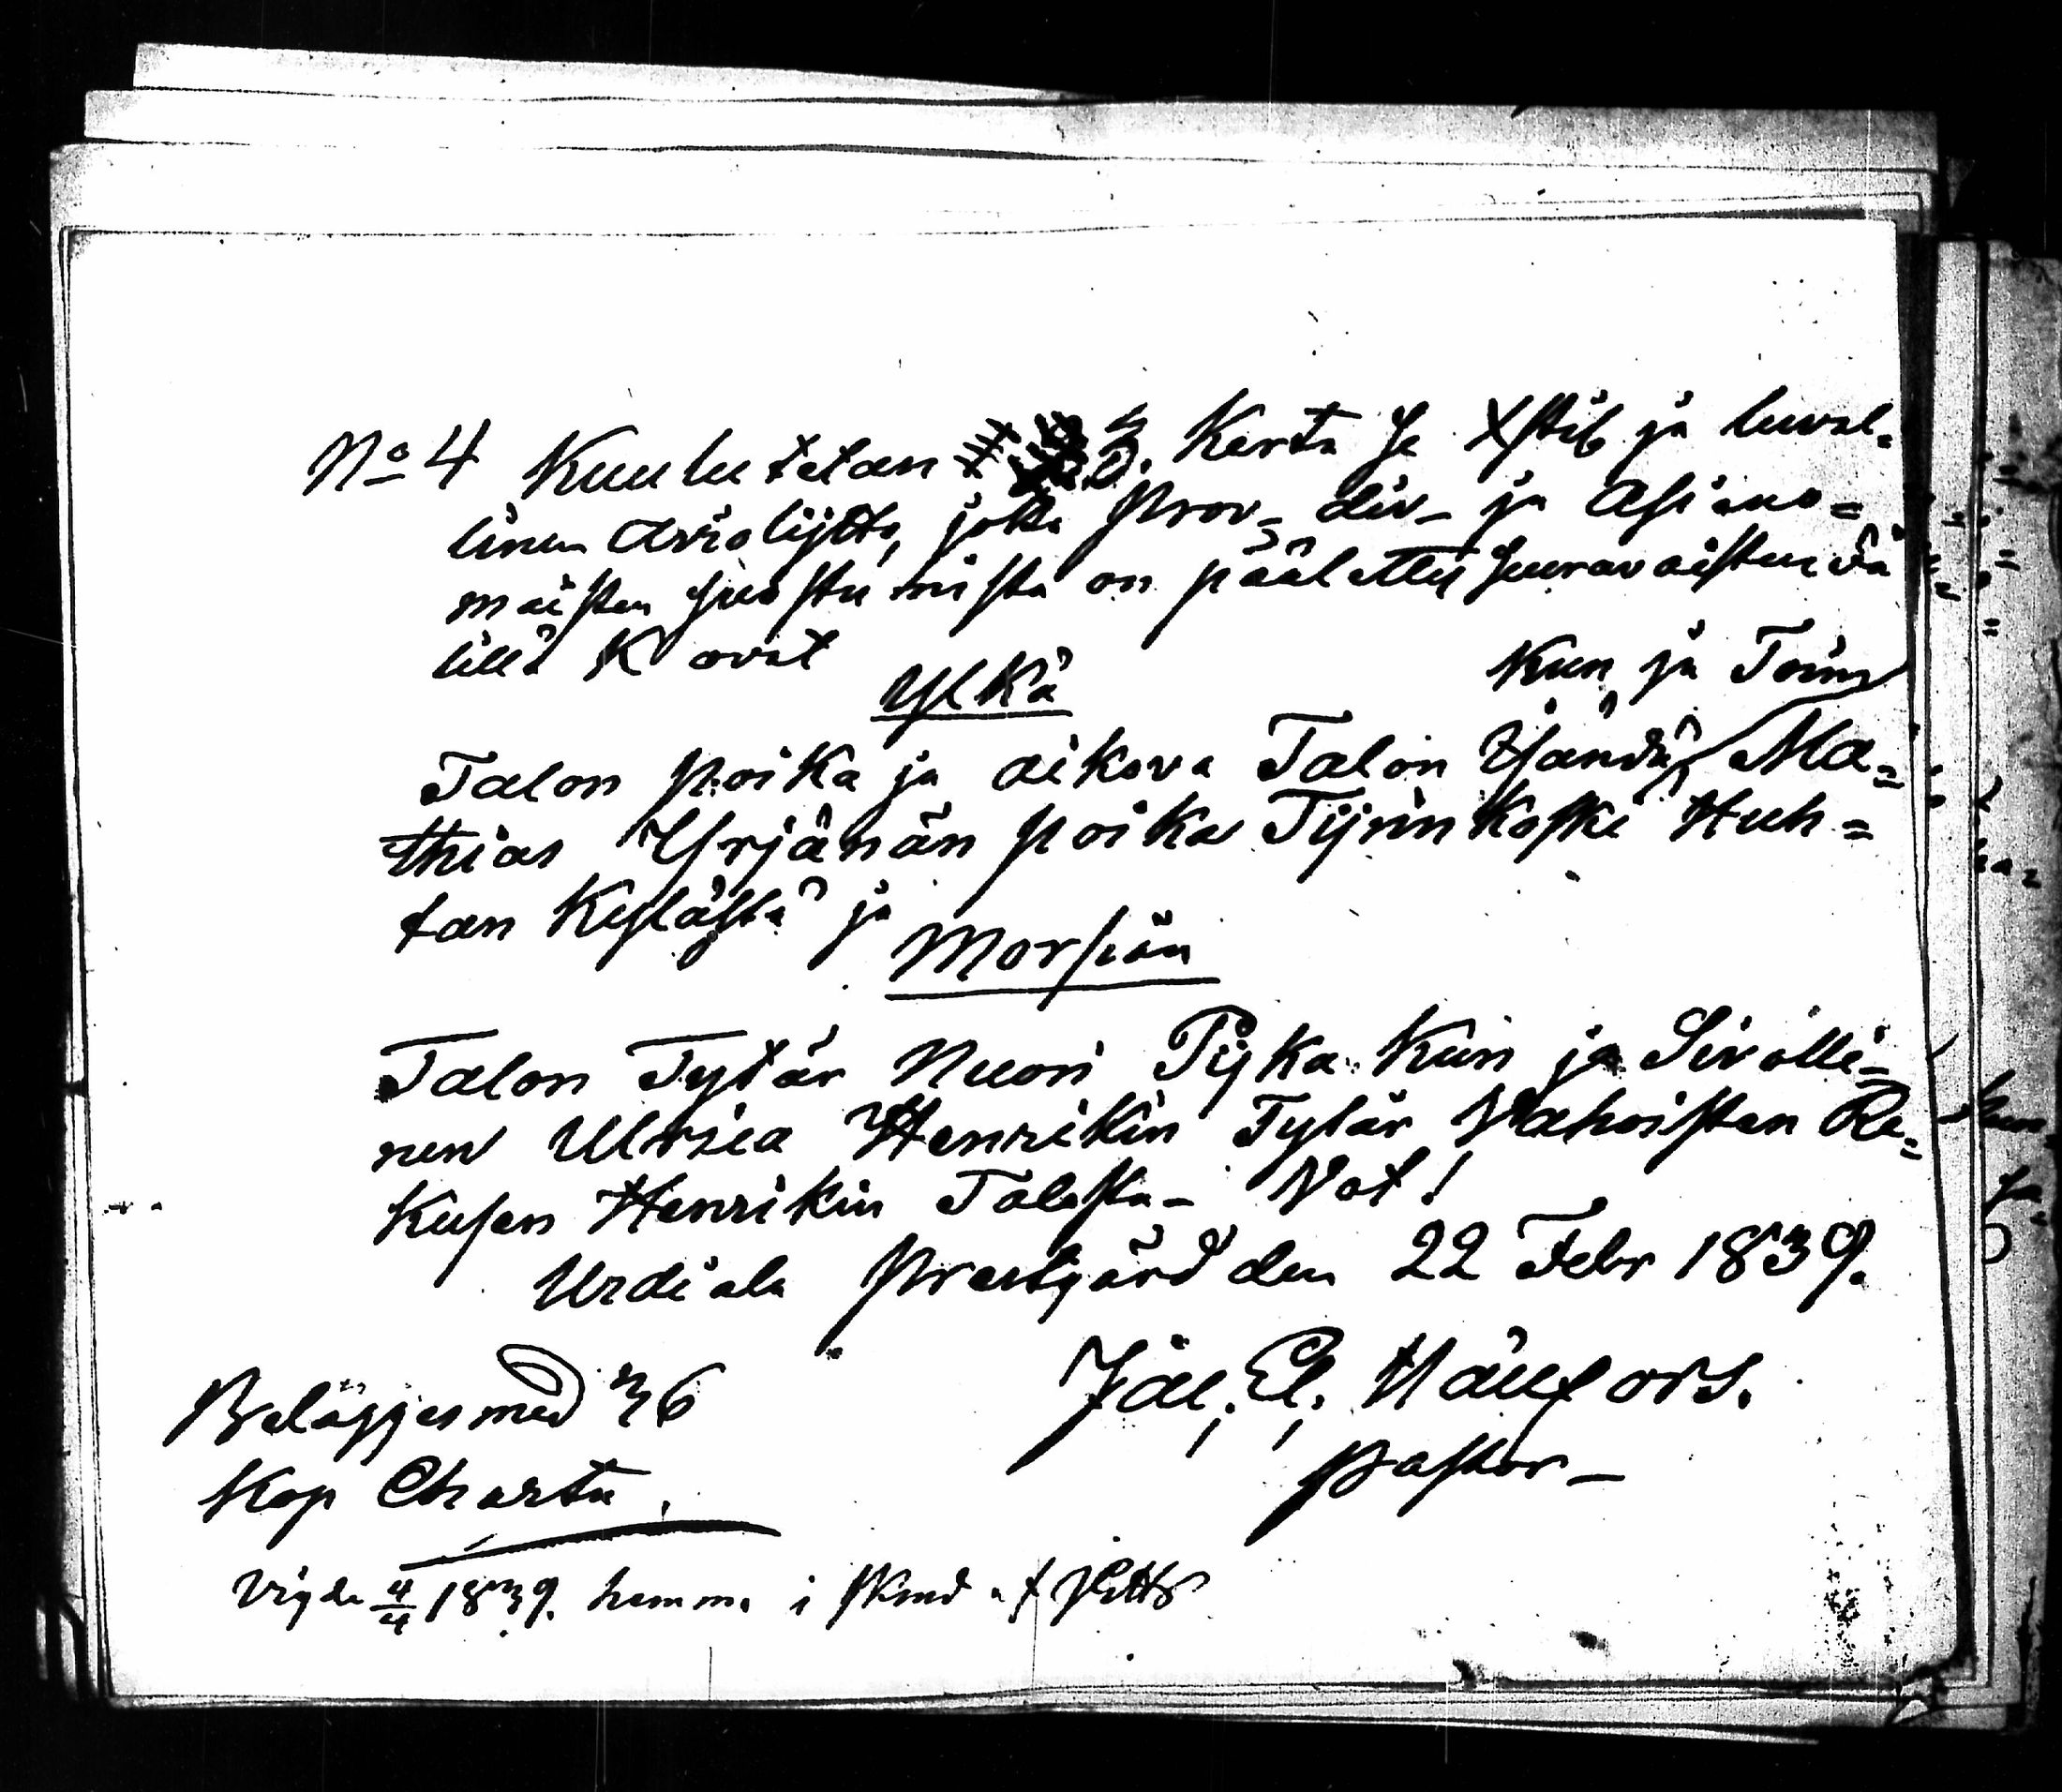 No 4 Kuulutetan 3. Kerta se Xstil ja luval-
linen Aviolijtto, joka prov- div- ja Asiano=
maisten suostumista on päätetty seuravaisten vä
lillä K ovat
Ylkä
Kun ja Toim
Talon poika ja aikova Talon Isändä Ma=
thias Yrjänän poika Tijrinkoski Huh=
tan Kylästä ja
Morsian
Talon Tytär Nuori Pijka Kun ja Sivolli-
nen Ulrica Henrikin Tytär Vahoisten Re-
kusen Henrikin Talosta- Vot!
Urdiala prestgård den 22 Febr 1839.
Belägges med 36
Kop Charta.
Pastor-
Vigde 4/4 1839. hemma i